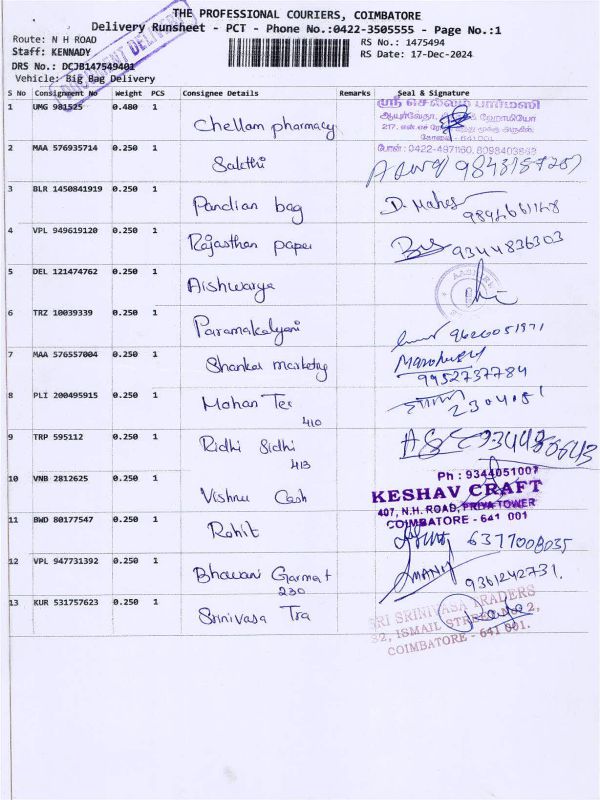 THE PROFESSIONAL COURIERS, COIMBATORE
Delivery Runsheet - PCT - Phone No.:0422-3505555 - Page No.:1
Route: N H ROAD
RS No.: 1475494
Staff: KENNADY
RS Date: 17-Dec-2024
DRS No.: DCJB147549401
Vehicle: Big Bag Delivery
S No Consignment No Weight PCS Consignee Details Remarks Seal & Signature
1 UMG 981525 0.480 1 Chellam pharmacy
ஸ்ரீ செல்லம் பார்மஸி
போன் : 0422-4971160, 8098403863
2 MAA 576935714 0.250 1 Sakthi
3 BLR 1450841919 0.250 1 Pandian bag D. Mahes
4 VPL 949619120 0.250 1 Rajasthan paper 9344836303
5 DEL 121474762 0.250 1 Aishwarya
6 TRZ 10039339 0.250 1 Paramakalyani 9626051971
7 MAA 576557004 0.250 1 Shankar marketing
9952737784
8 PLI 200495915 0.250 1 Mohan Tex 2304151
410
9 TRP 595112 0.250 1 Ridhi Sidhi
413
10 VNB 2812625 0.250 1 Vishnu Cash
Ph : 9344051007
KESHAV CRAFT
407, N.H. ROAD, PRIYA TOWER
COIMBATORE - 641 001
11 BWD 80177547 0.250 1 Rohit 6377008035
12 VPL 947731392 0.250 1 Bhawani Garmat 9361242731.
230
13 KUR 531757623 0.250 1 Srinivasa Tra
SRI SRINIVASA TRADERS
COIMBATORE - 641 001.